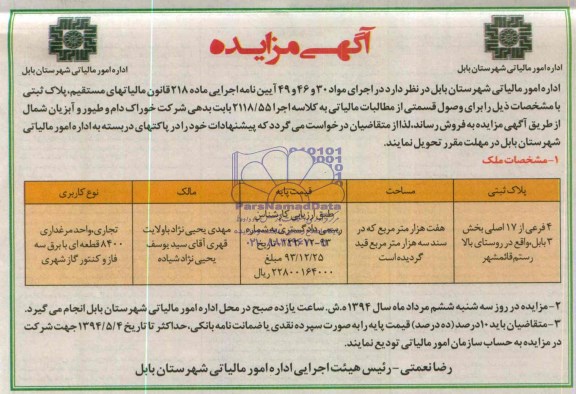 آگهی مزایده
اداره امور مالیاتی شهرستان بابل
اداره امور مالیاتی شهرستان بابل
اداره امور مالیاتی شهرستان بابل در نظر دارد در اجرای مواد ۳۰ و ۴۶ و ۴۹ آیین نامه اجرایی ماده ۲۱۸ قانون مالیاتهای مستقیم، پلاک ثبتی
با مشخصات ذیل را برای وصول قسمتی از مطالبات مالیاتی به کلاسه اجرا ۲۱۱۸/۵۵ بابت بدهی شرکت خوراک دام و طیور و آبزیان شمال
از طریق آگهی مزایده به فروش رساند، لذا از متقاضیان درخواست می گردد که پیشنهادات خود را در پاکتهای دربسته به اداره امور مالیاتی
شهرستان بابل در مهلت مقرر تحویل نمایند.
۱- مشخصات ملک
پلاک ثبتی
مساحت
قیمت پایه
مالک
نوع کاربری
۴ فرعی از ۱۷ اصلی بخش
۳ بابل، واقع در روستای بالا
رستم قائمشهر
هفت هزار متر مربع که در
سند سه هزار متر مربع قید
گردیده است
طبق ارزیابی کارشناس
رسمی دادگستری به شماره
تاریخ
۹۳/۱۲/۲۵ مبلغ
۲۲۸۰۰۱۶۴۰۰۰ ریال
مهدی یحیی نژاد با ولایت
قهری آقای سید یوسف
یحیی نژاد شیاده
تجاری، واحد مرغداری
۸۴۰۰ قطعه ای با برق سه
فاز و کنتور گاز شهری
ParsNamadData
۲- مزایده در روز سه شنبه ششم مرداد ماه سال ۱۳۹۴ ه.ش. ساعت یازده صبح در محل اداره امور مالیاتی شهرستان بابل انجام می گیرد.
۳- متقاضیان باید ۱۰ درصد (ده درصد) قیمت پایه را به صورت سپرده نقدی یا ضمانت نامه بانکی، حداکثر تا تاریخ ۱۳۹۴/۵/۴ جهت شرکت
در مزایده به حساب سازمان امور مالیاتی تودیع نمایند.
رضا نعمتی - رئیس هیئت اجرایی اداره امور مالیاتی شهرستان بابل